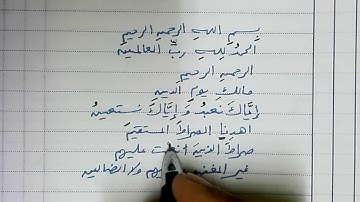 بسم الله الرحمن الرحيم
الحمد لله ربّ العالمين
الرحمن الرحيم
مالك يوم الدين
إيَّاكَ نَعبُدُ وَ إيَّاكَ نَستعينُ
اهدنا الصراط المستقيم
صراط الذين عليهم
غير ولا الضالين